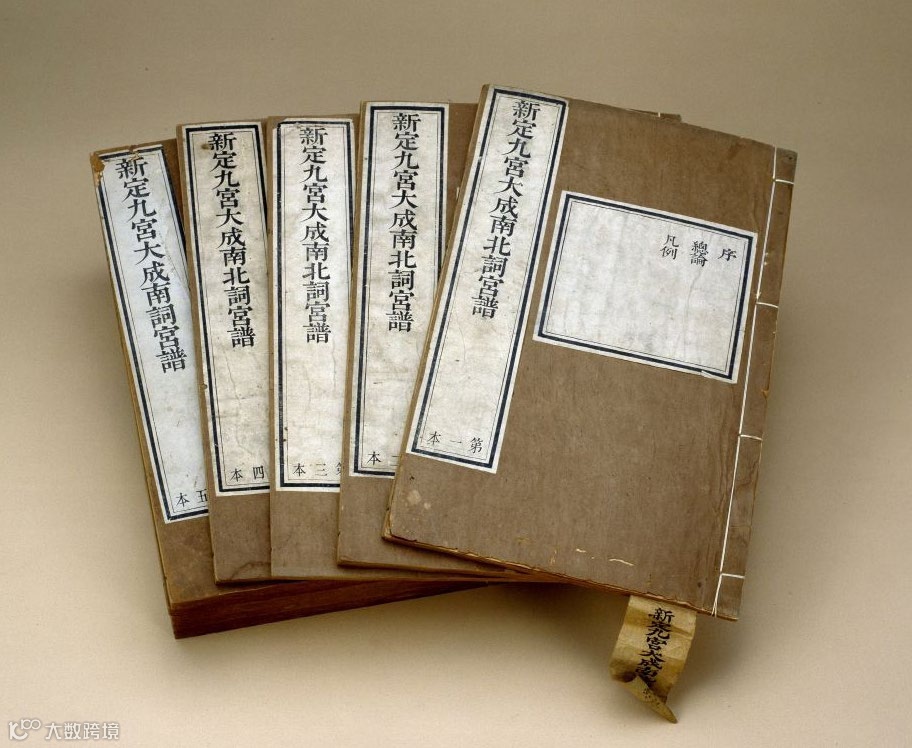 序
總論
凡例
新定九宮大成南北詞宮譜
第一本
新定九宮大成南北詞宮譜
二本
新定九宮大成南北詞宮譜
第三本
新定九宮大成南北詞宮譜
四本
新定九宮大成南詞宮譜
五本
新定九宮大成南
大数跨境